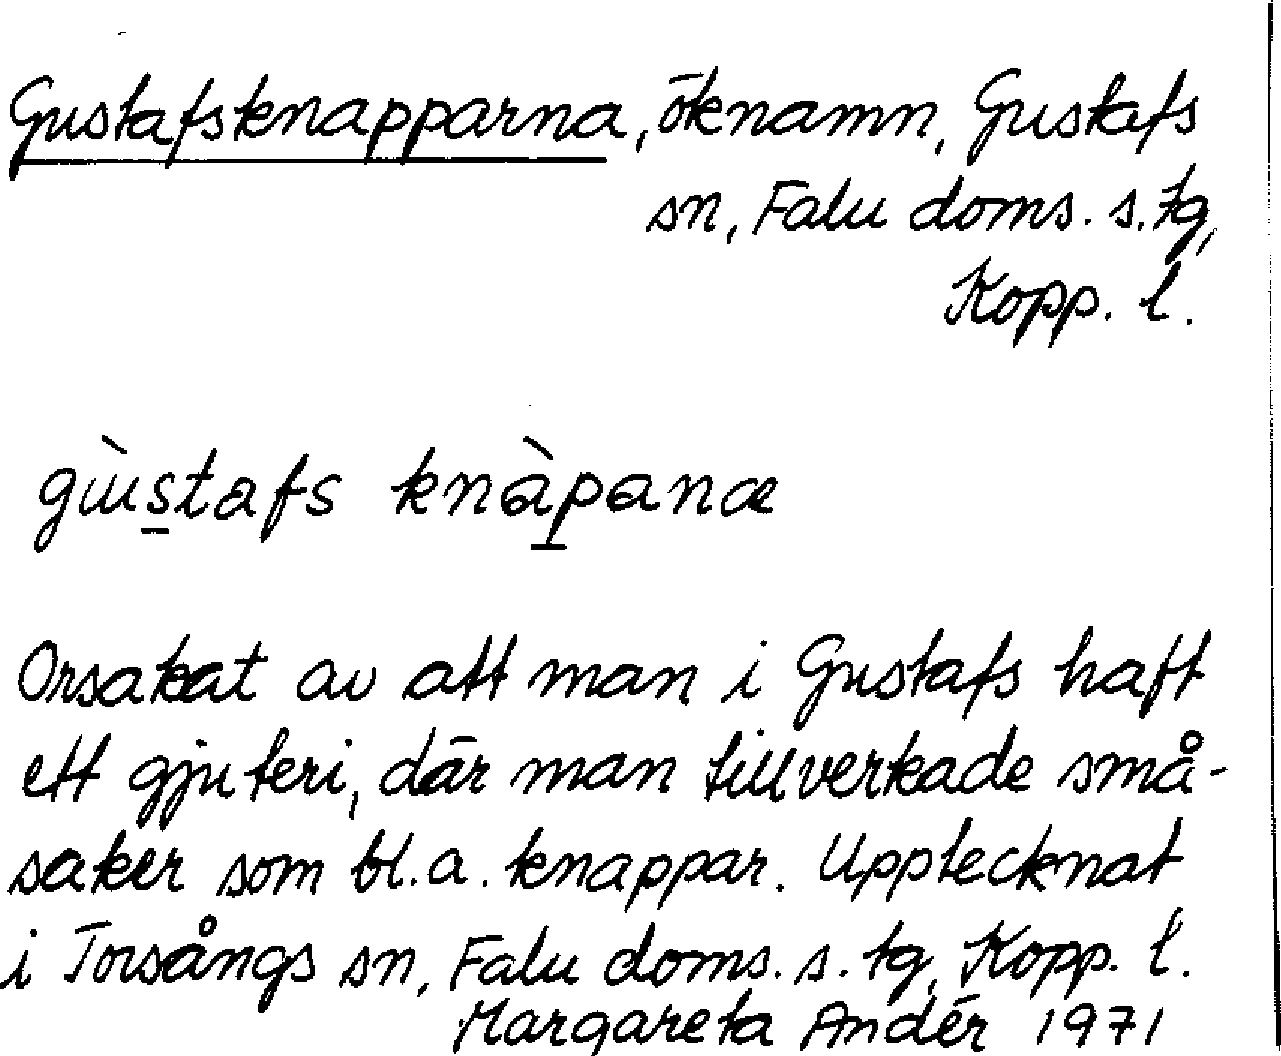 Gustafsknapparna, öknamn, Gustafs
sn, Falu doms. s. tg,
Kopp. l.
gùstafs knàpanæ
Orsakat av att man i Gustafs haft
ett gjuteri, där man tillverkade små-
saker som bl.a. knappar. Upptecknat
i Torsångs sn, Falu doms. s. tg, Kopp. l.
Margareta Andér 1971